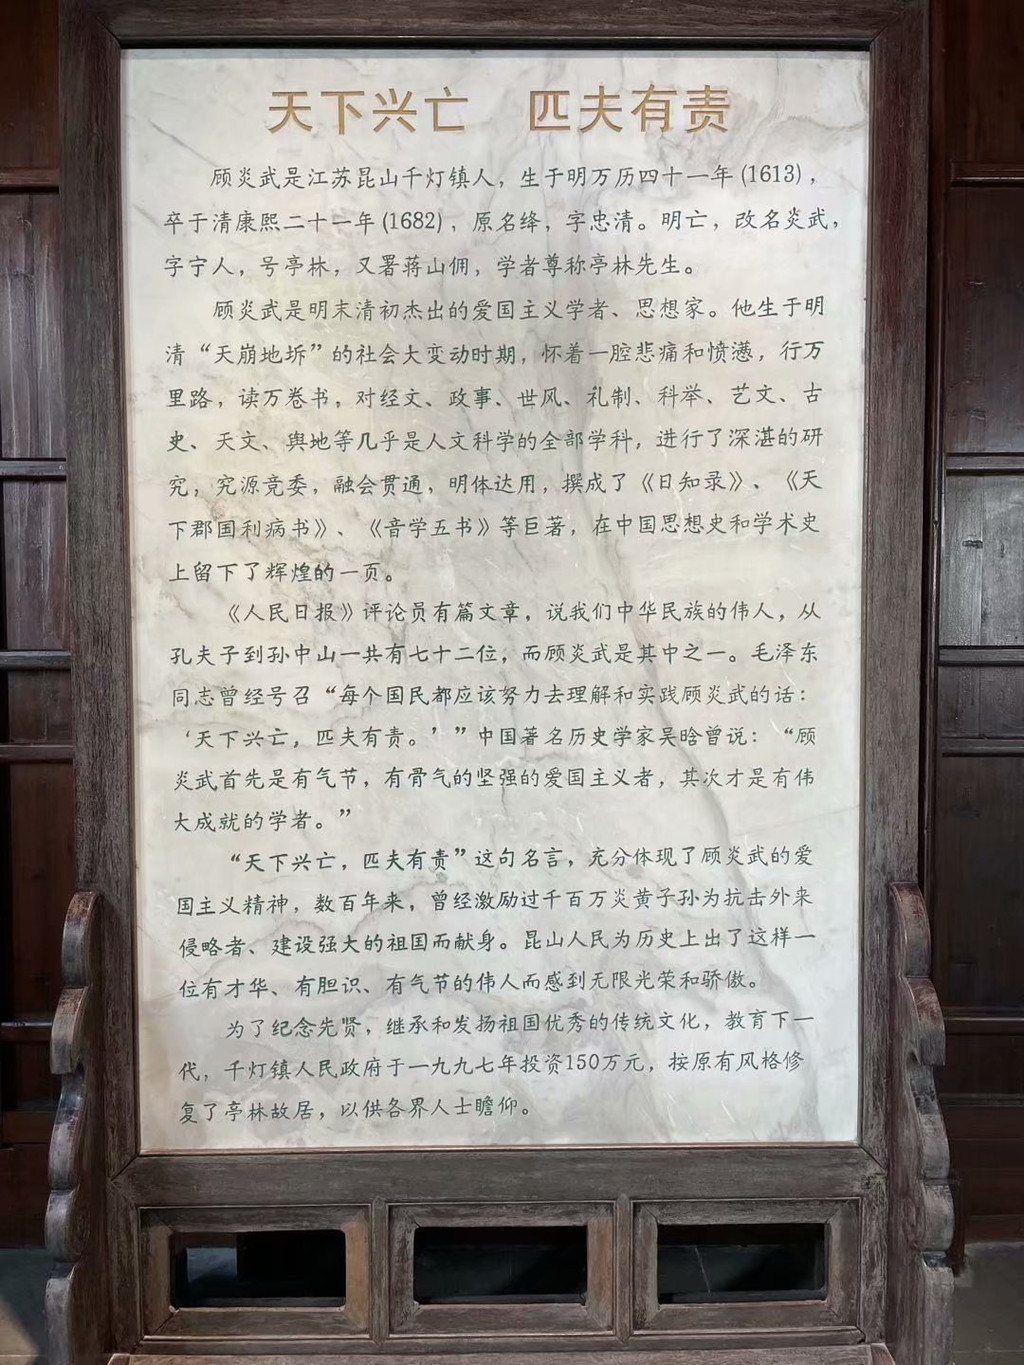 天下兴亡　匹夫有责
顾炎武是江苏昆山千灯镇人，生于明万历四十一年(1613)，
卒于清康熙二十一年(1682)，原名绛，字忠清。明亡，改名炎武，
字宁人，号亭林，又署蒋山佣，学者尊称亭林先生。
顾炎武是明末清初杰出的爱国主义学者、思想家。他生于明
清“天崩地坼”的社会大变动时期，怀着一腔悲痛和愤懑，行万
里路，读万卷书，对经文、政事、世风、礼制、科举、艺文、古
史、天文、舆地等几乎是人文科学的全部学科，进行了深湛的研
究，究源竞委，融会贯通，明体达用，撰成了《日知录》、《天
下郡国利病书》、《音学五书》等巨著，在中国思想史和学术史
上留下了辉煌的一页。
《人民日报》评论员有篇文章，说我们中华民族的伟人，从
孔夫子到孙中山一共有七十二位，而顾炎武是其中之一。毛泽东
同志曾经号召“每个国民都应该努力去理解和实践顾炎武的话：
‘天下兴亡，匹夫有责。’”中国著名历史学家吴晗曾说：“顾
炎武首先是有气节，有骨气的坚强的爱国主义者，其次才是有伟
大成就的学者。”
“天下兴亡，匹夫有责”这句名言，充分体现了顾炎武的爱
国主义精神，数百年来，曾经激励过千百万炎黄子孙为抗击外来
侵略者、建设强大的祖国而献身。昆山人民为历史上出了这样一
位有才华、有胆识、有气节的伟人而感到无限光荣和骄傲。
为了纪念先贤，继承和发扬祖国优秀的传统文化，教育下一
代，千灯镇人民政府于一九九七年投资150万元，按原有风格修
复了亭林故居，以供各界人士瞻仰。